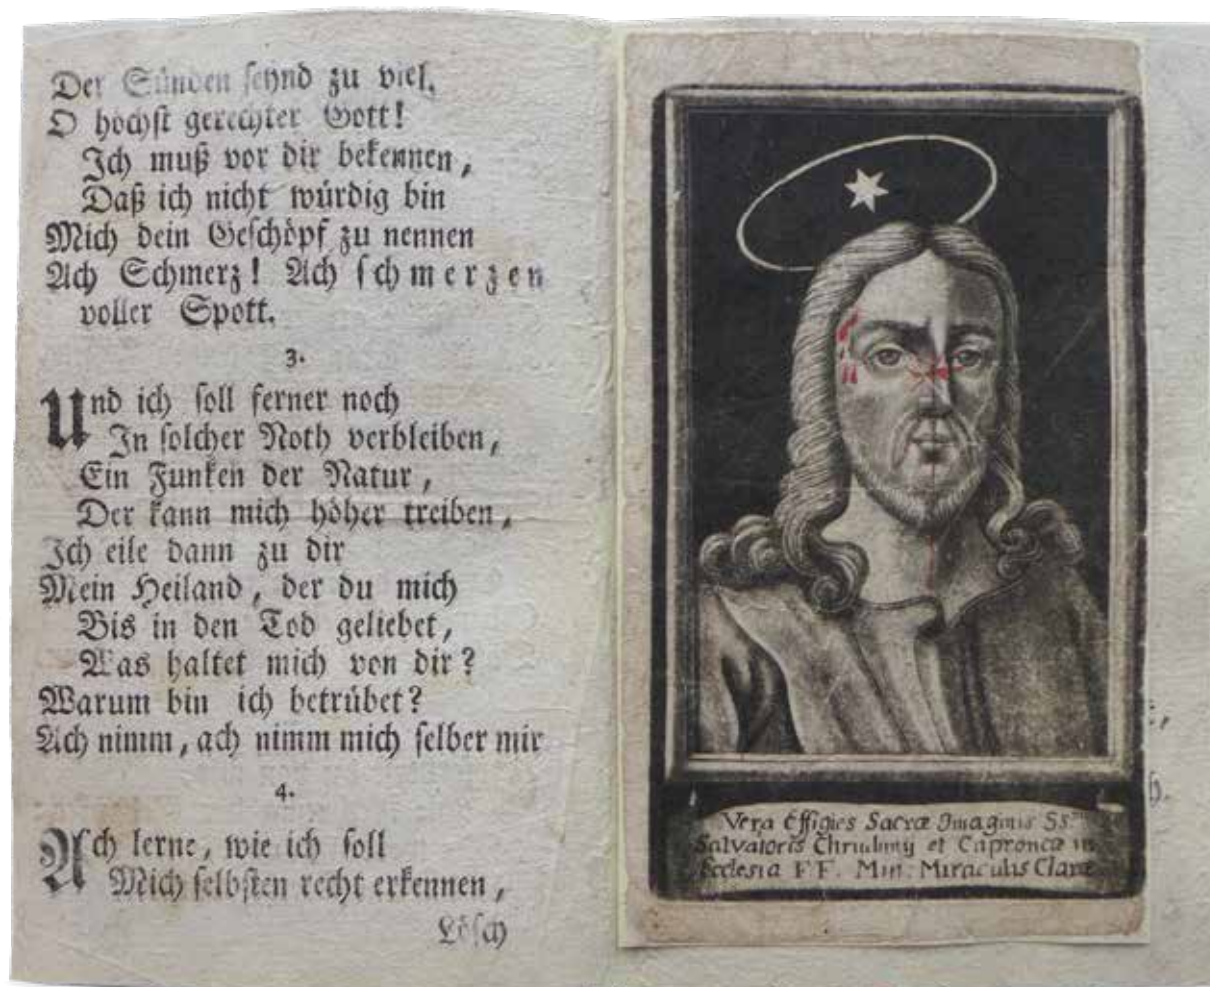 Der Sünden seynd zu viel,
O höchst gerechter Gott!
Ich muß vor dir bekennen,
Daß ich nicht würdig bin
Mich dein Geschöpf zu nennen
Ach Schmerz! Ach schmerzen
voller Spott.
3.
Und ich soll ferner noch
In solcher Noth verbleiben,
Ein Funken der Natur,
Der kann mich höher treiben,
Ich eile dann zu dir
Mein Heiland, der du mich
Bis in den Tod geliebet,
Was haltet mich von dir?
Warum bin ich betrübet?
Ach nimm, ach nimm mich selber mir
4.
Ach lerne, wie ich soll
Mich selbsten recht erkennen,
Lösch
Vera Effigies Sacræ Imaginis SS.
Salvatoris et Caproncæ in
Ecclesia FF. Min. Miraculis Claræ